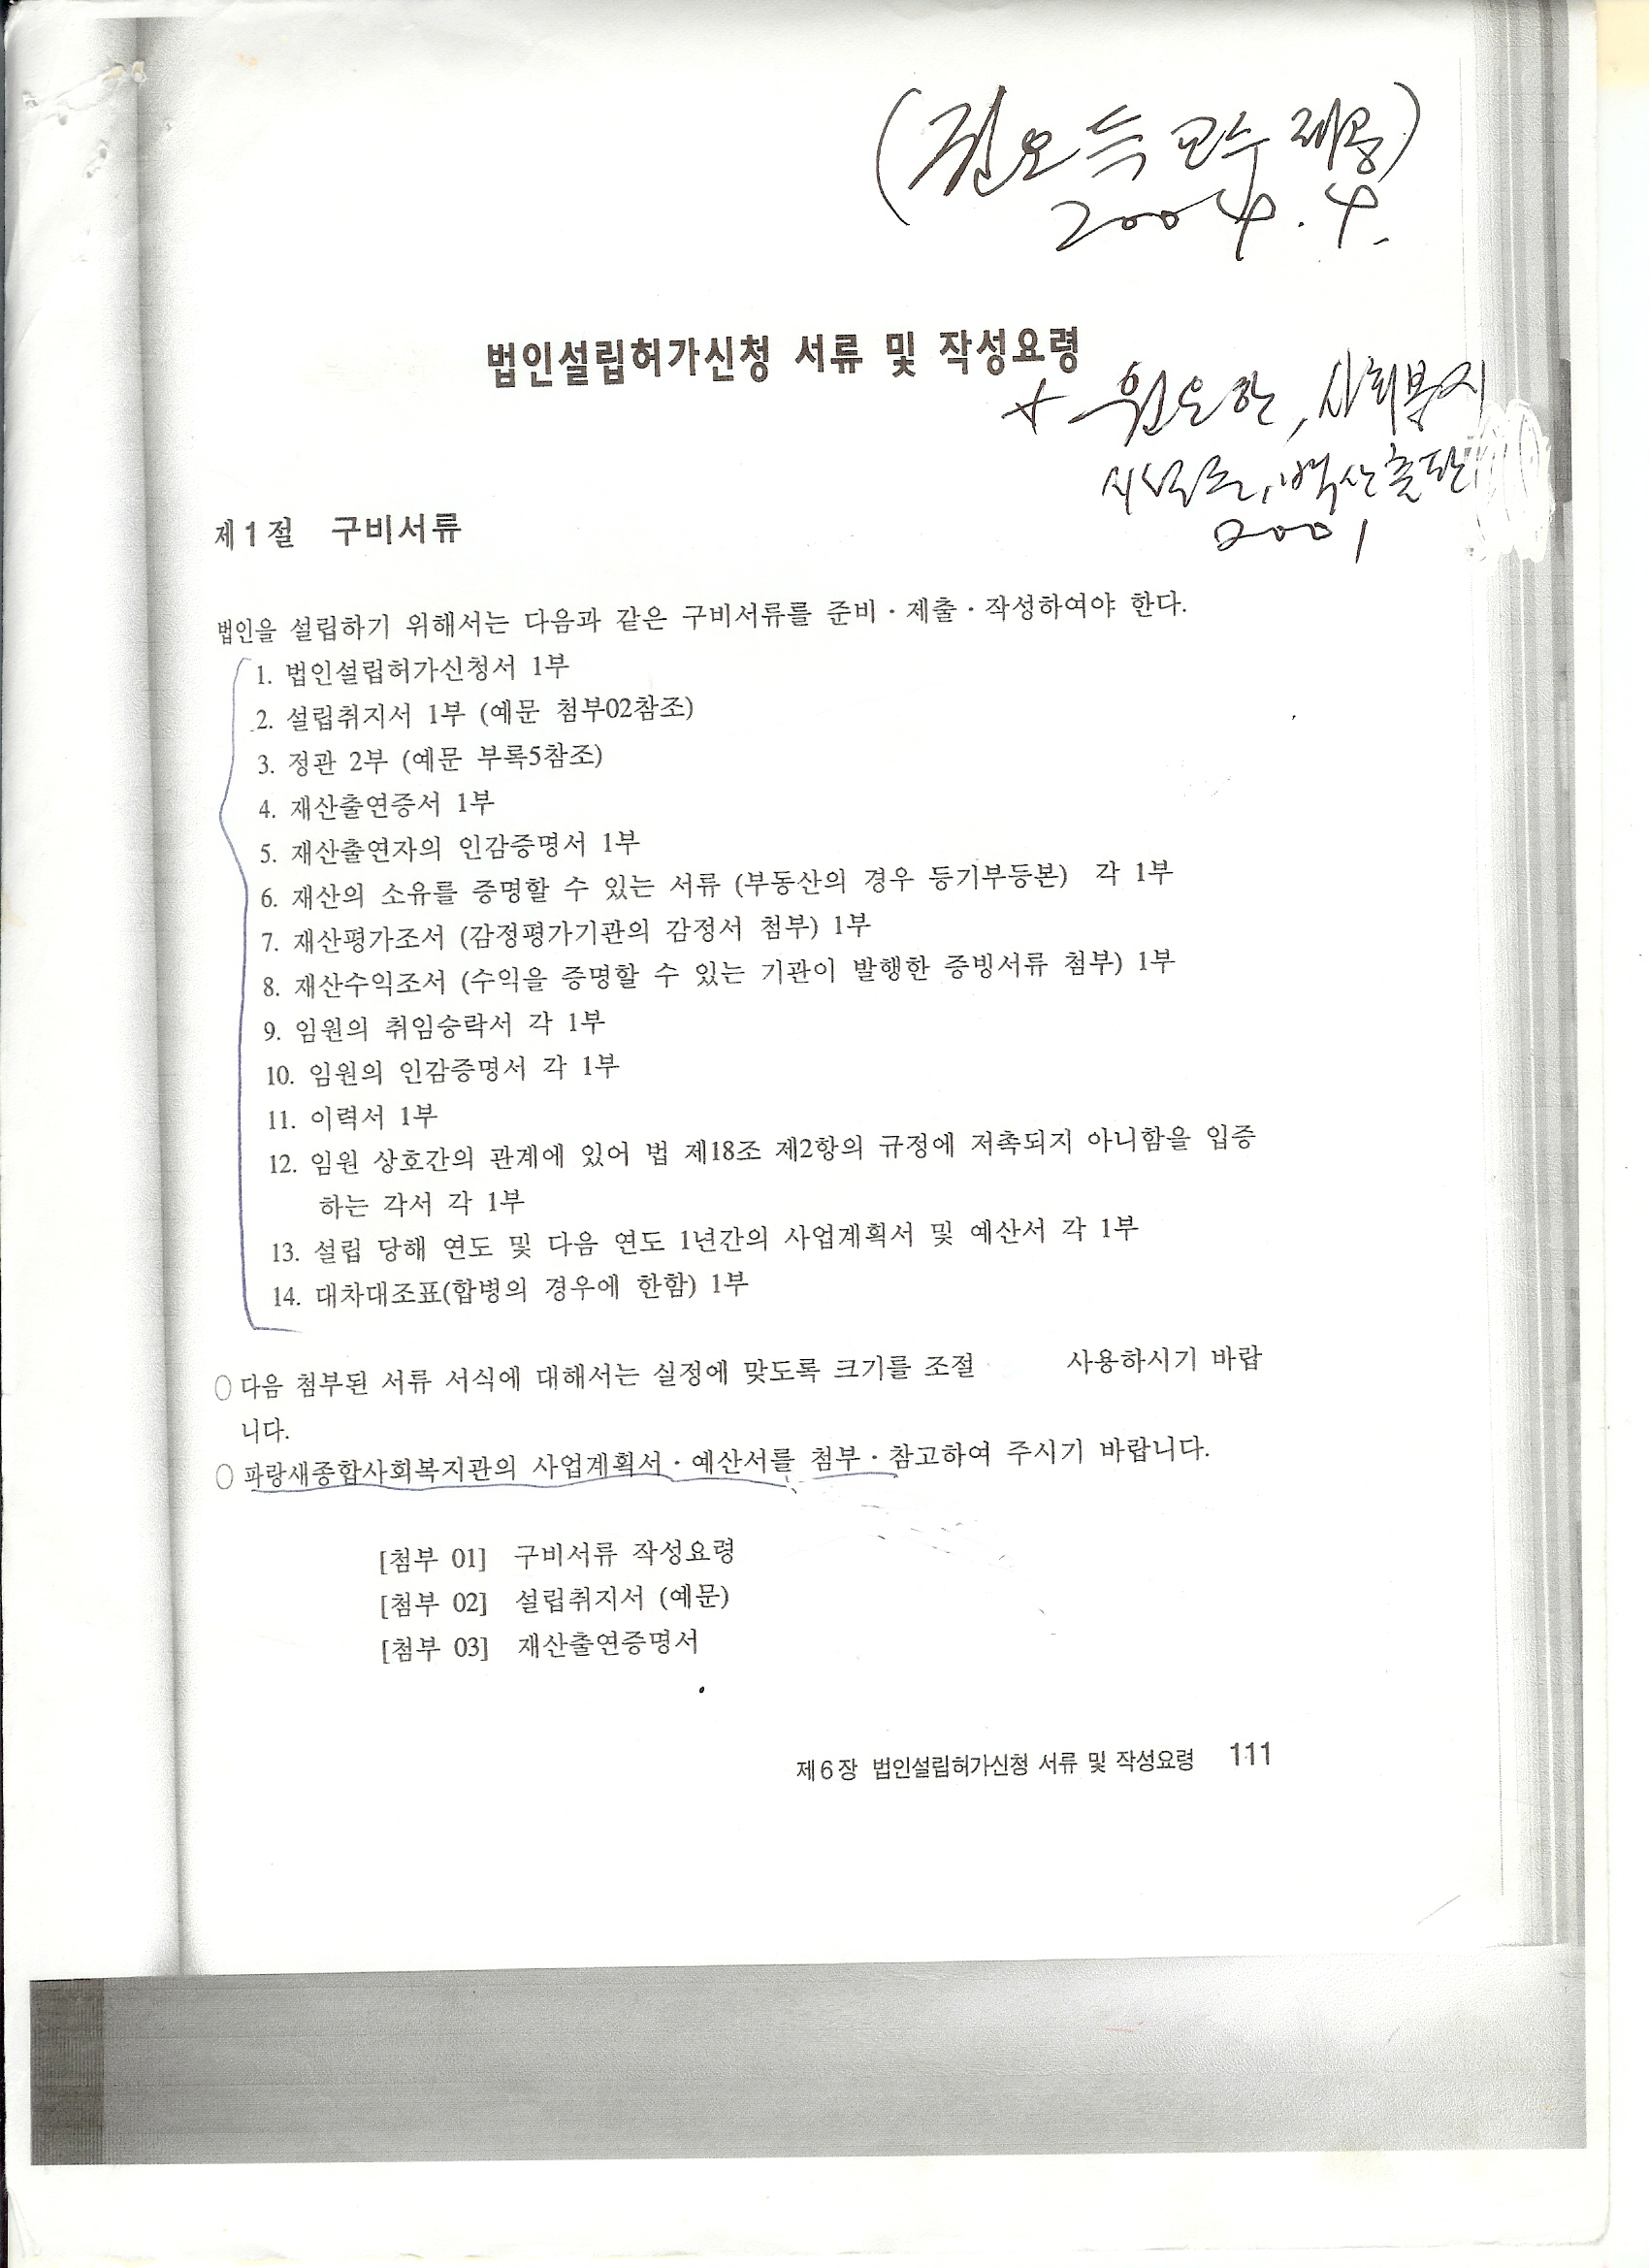 (권오득 교수 제공)
2004. 4.
법인설립허가신청 서류 및 작성요령
원요한, 사회복지
시설론, 백산출판
2001
제1절 구비서류
법인을 설립하기 위해서는 다음과 같은 구비서류를 준비·제출·작성하여야 한다.
1. 법인설립허가신청서 1부
2. 설립취지서 1부 (예문 첨부02참조)
3. 정관 2부 (예문 부록5참조)
4. 재산출연증서 1부
5. 재산출연자의 인감증명서 1부
6. 재산의 소유를 증명할 수 있는 서류 (부동산의 경우 등기부등본) 각 1부
7. 재산평가조서 (감정평가기관의 감정서 첨부) 1부
8. 재산수익조서 (수익을 증명할 수 있는 기관이 발행한 증빙서류 첨부) 1부
9. 임원의 취임승락서 각 1부
10. 임원의 인감증명서 각 1부
11. 이력서 1부
12. 임원 상호간의 관계에 있어 법 제18조 제2항의 규정에 저촉되지 아니함을 입증
하는 각서 각 1부
13. 설립 당해 연도 및 다음 연도 1년간의 사업계획서 및 예산서 각 1부
14. 대차대조표(합병의 경우에 한함) 1부
○ 다음 첨부된 서류 서식에 대해서는 실정에 맞도록 크기를 조절 사용하시기 바랍
니다.
○ 파랑새종합사회복지관의 사업계획서·예산서를 첨부·참고하여 주시기 바랍니다.
[첨부 01] 구비서류 작성요령
[첨부 02] 설립취지서 (예문)
[첨부 03] 재산출연증명서
제6장 법인설립허가신청 서류 및 작성요령 111